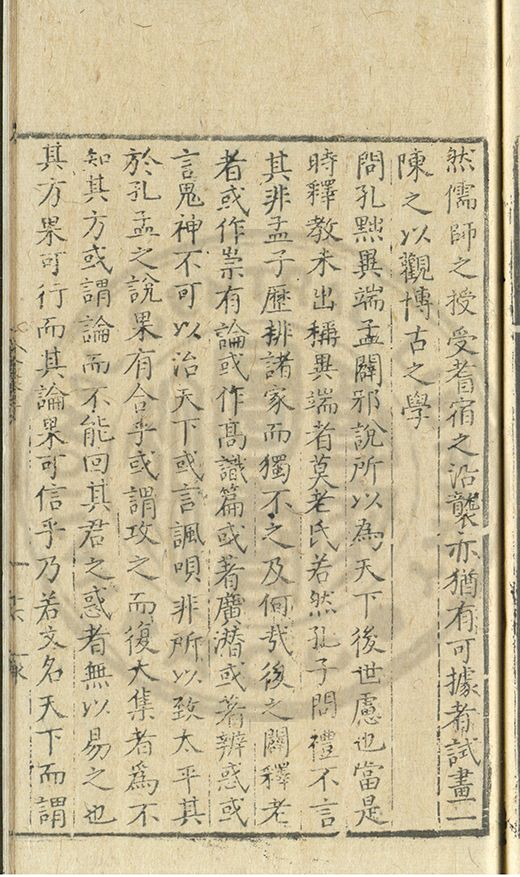 然儒師之授受耆宿之沿襲亦猶有可據者試畫一
陳之以觀博古之學
問孔黜異端孟闢邪說所以為天下後世慮也當是
時釋教未出稱異端者莫老氏若然孔子問禮不言
其非孟子歷排諸家而獨不之及何㢤後之闢釋老
者或作崇有論或作高識篇或著廣潜或著辨惑或
言鬼神不可以治天下或言諷唄非所以致太平其
於孔孟之說果有合乎或謂攻之而復大集者爲不
知其方或謂論而不能回其君之惑者無以易之也
其方果可行而其論果可信乎乃若文名天下而謂